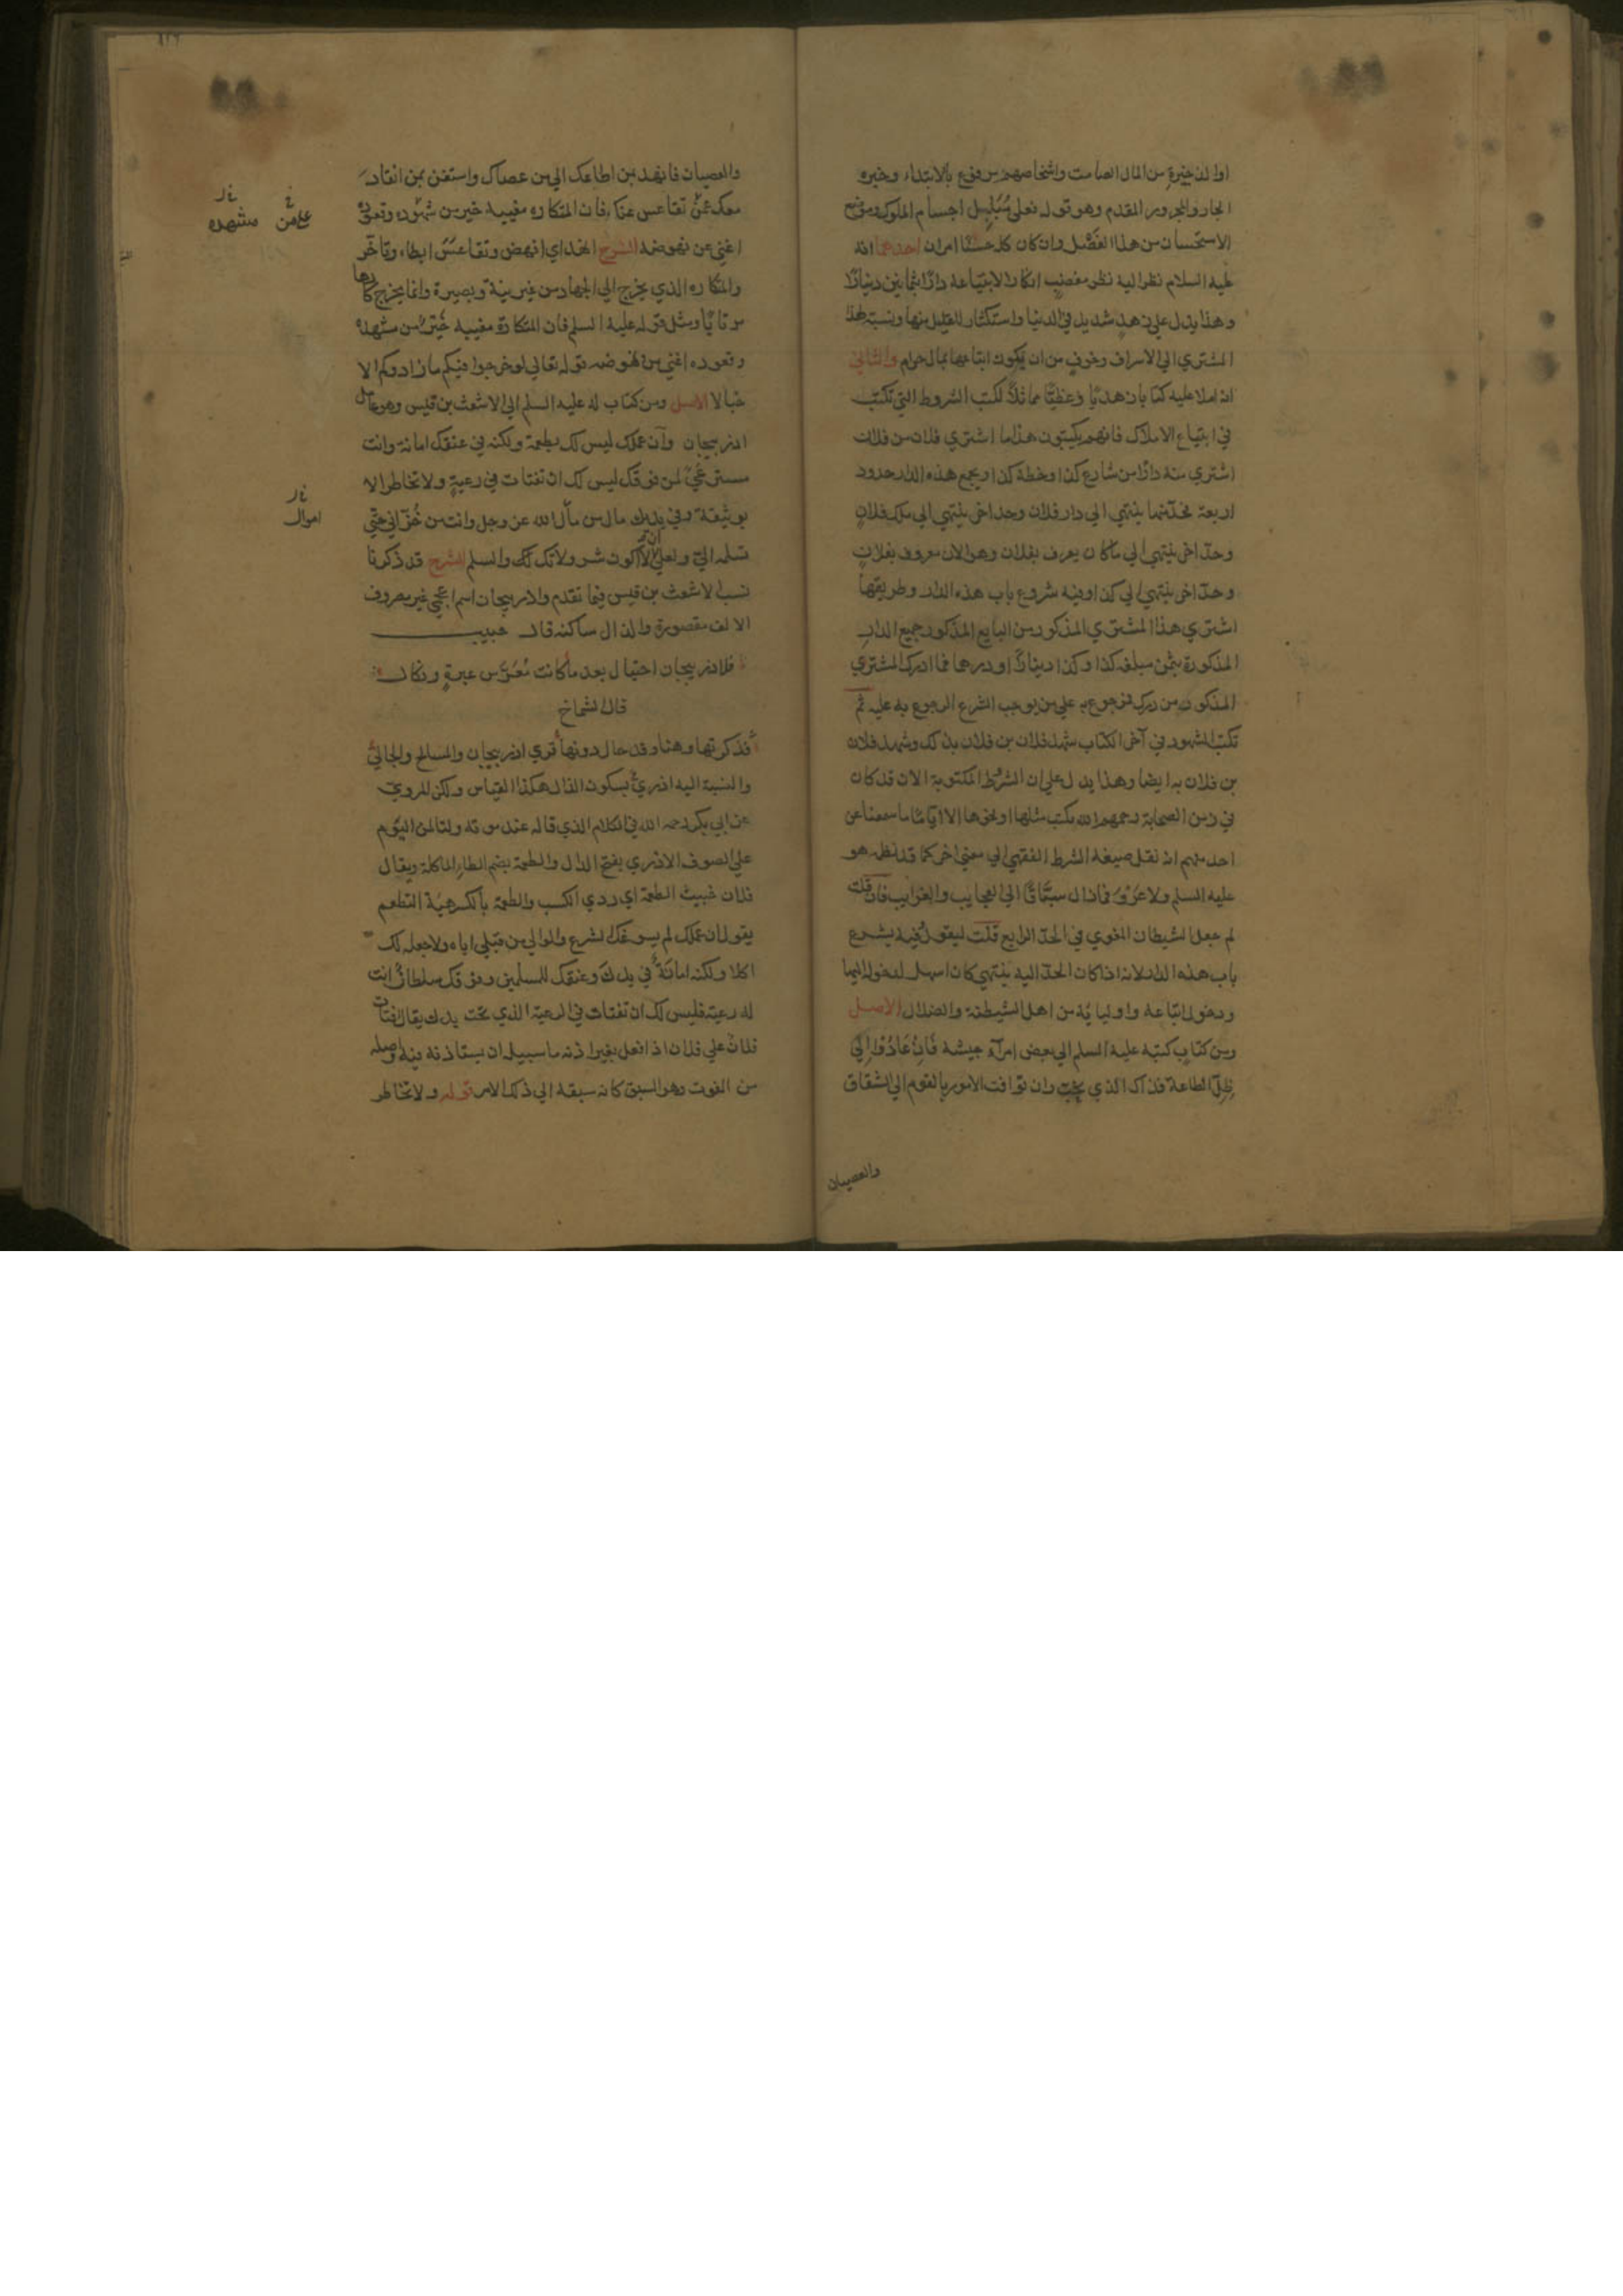 او الذخيرة من المال الصامت واشخاصهم مرفوع بالابتداء وخبره
الجار والمجرور المقدم وهو قوله فعلى مُبَلبِل اجسام الملوك وموضع
الاستحسان من هذا الفَصْل وان كان كله حسنًا امران احدهما انه
عليه السلام نظر اليه نظر مغضب انكارا لابتياعه دارًا بثمانين دينارًا
وهذا يدل على زهد شديد في الدنيا واستكثار للقليل منها ونسبة لهذا
المشتري الى الاسراف وخوف من ان يكون ابتاعها بمال حرام والثاني
انه املا عليه كتابا زهديًا وعظيًا مماثلاً لكتب الشروط التي تكتب
في ابتياع الاملاك فانهم يكتبون هذا ما اشترى فلان من فلان
اشترى منه دارًا من شارع كذا وخطة كذا ويجمع هذه الدار حدود
اربعة فحدّ منها ينتهي الى دار فلان وحد اخر ينتهي الى ملك فلان
وحدّ اخر ينتهي الى ما كان يعرف بفلان وهو الان معروف بفلان
وحدّ اخر ينتهي الى كذا وفيه شروع باب هذه الدار وطريقها
اشترى هذا المشتري المذكور من البايع المذكور جميع الدار
المذكورة بثمن مبلغه كذا وكذا دينارًا او درهما فما ادرك المشتري
المذكور من درك فمرجوع به على من يوجب الشرع الرجوع به عليه ثم
تكتب الشهود في آخر الكتاب شهد فلان بن فلان بذلك وشهد فلان
بن فلان به ايضا وهذا يدل على ان الشروط المكتوبة الان قد كان
في زمن الصحابة رحمهم الله يكتب مثلها او نحوها الا انّا ما سمعنا عن
احد منهم انه نقل صيغة الشرط الفقهي الى معنى اخر كما قد نظمه هو
عليه السلم ولا غَرْوَ فما زال سبّاقًا الى العجايب والغرايب فان قلت
لم جعل الشيطان المغوي في الحدّ الرابع قلت ليقول وفيه يشرع
باب هذه الدار لانه اذا كان الحدّ اليه ينتهي كان اسهل لدخوله اليها
ودخول اتباعه واوليايه من اهل الشيطنة والضلال الاصل
ومن كتاب كتبه عليه السلم الى بعض امرآء جيشه فَاِنْ عَادُوْا اِلى
ظِلِّ الطاعة فذاك الذي نحب وان توافت الامور بالقوم الى الشقاق
والعصيان
والعصيان فانهد بمن اطاعك الى من عصاك واستغن بمن انقاد
معك عمّن تقاعس عنك فان المتكاره مغيبه خير من شهوده وقعوده
اغنى من نهوضه الشرح انهد اي انهض وتقاعَسَ ابطاء وتاخّر
والمتكاره الذي يخرج الى الجهاد من غير نية وبصيرة وانما يخرج كارها
مرتابًا ومثل قوله عليه السلم فان المتكاره مغيبه خيرٌ من مشهده
وقعوده اغنى من نهوضه قوله تعالى لو خرجوا فيكم ما زادوكم الا
خبالا الاصل ومن كتاب له عليه السلم الى الاشعث بن قيس وهو عامل
اذربيجان وان عملك ليس لك بطعمة ولكنه في عنقك امانة وانت
مسترعًى لمن فوقك ليس لك ان تفتات في رعية ولا تخاطر الا
بوثيقة وفي يديك مال من مال الله عز وجل وانت من خُزّاني حتى
تسلمه اليّ ولعلي الا اكون شر ولاتك لك والسلم الشرح قد ذكرنا
نسب الاشعث بن قيس فيما تقدم واذربيجان اسم اعجمي غير معروف
الالف مقصورة والذال ساكنة قال حبيب
فلاذربيجان اختيال بعد ما كانت مُعَرّس عبرةٍ ونكال
قال الشماخ
فذكرتها وهنا وقد حال دونها قرى اذربيجان والمسالح والجالي
والنسبة اليه اذري بسكون الذال هكذا القياس ولكن المروي
عن ابي بكر رحمه الله في الكلام الذي قاله عند موته ولتالمن النوم
على الصوف الاذري بفتح الذال والطعمة بضم الطاء الماكلة ويقال
فلان خبيث الطعمة اي ردي الكسب والطعمة بالكسر هيئة التطعم
يقول ان عملك لم يسوغك الشرع والوالي من قبلي اياه ولا جعله لك
اكلا ولكنه امانة في يدك وعنقك للمسلمين وفوقك سلطان انت
له رعية فليس لك ان تفتات في الرعية الذي تحت يدك يقال افتات
فلان على فلان اذا فعل بغير اذنه ما سبيله ان يستاذنه فيه واصله
من الفوت وهو السبق كانه سبقه الى ذلك الامر قوله ولا تخاطر
مشهده
اموال